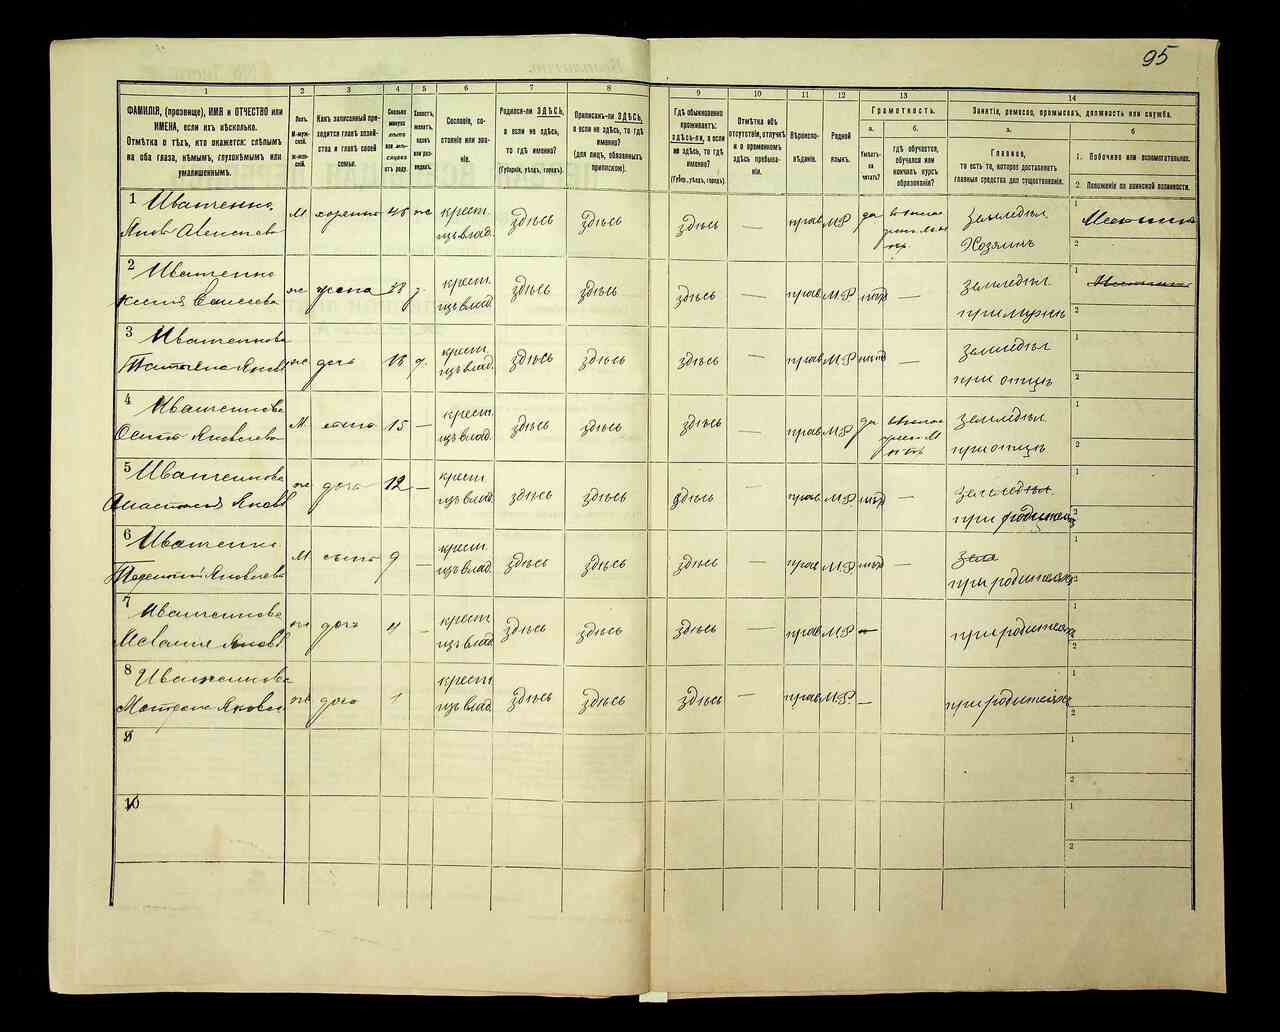 95
1 2 3 4 5 6 7 8 9 10 11 12 13 14
ФАМИЛІЯ, (прозвище), ИМЯ и ОТЧЕСТВО или
ИМЕНА, если ихъ нѣсколько.
Отмѣтка о тѣхъ, кто окажется: слѣпымъ
на оба глаза, нѣмымъ, глухонѣмымъ или
умалишеннымъ.
Полъ.
М-муж-
ской.
Ж-жен-
скій.
Какъ записанный при-
ходится главѣ хозяй-
ства и главѣ своей
семьи.
Сколько
минуло
лѣтъ
или мѣ-
сяцевъ
отъ роду.
Холостъ,
женатъ,
вдовъ
или раз-
веденъ.
Сословіе, со-
стояніе или зва-
ніе.
Родился-ли ЗДѢСЬ,
а если не здѣсь,
то гдѣ именно?
(Губернія, уѣздъ, городъ).
Приписанъ-ли ЗДѢСЬ,
а если не здѣсь, то гдѣ
именно?
(для лицъ, обязанныхъ
припиской).
Гдѣ обыкновенно
проживаетъ:
здѣсь-ли, а если
не здѣсь, то гдѣ
именно?
(Губер., уѣздъ, городъ).
Отмѣтка объ
отсутствіи, отлучкѣ
и о временномъ
здѣсь пребыва-
ніи.
Вѣроиспо-
вѣданіе.
Родной
языкъ.
Грамотность.
а.
Умѣетъ-
ли
читать?
б.
гдѣ обучается,
обучался или
кончилъ курсъ
образованія?
Занятіе, ремесло, промыселъ, должность или служба.
а.
Главное,
то есть то, которое доставляетъ
главныя средства для существованія.
б
1. Побочное или вспомогательное.
2. Положеніе по воинской повинности.
1 Ивашенко
Яковъ М хозяинъ 45 ж крест. здѣсь здѣсь здѣсь — прав М.Р да земледѣл 1
щъ влад. Хозяинъ 2
2 Ивашенко
ж жена 38 з. крест. здѣсь здѣсь здѣсь — прав М.Р нѣтъ — земледѣл 1
щъ влад. при мужѣ 2
3 Ивашенкова
Татьяна Яковл ж дочь 18 д. крест. здѣсь здѣсь здѣсь — прав М.Р нѣтъ — земледѣл 1
щъ влад. при отцѣ 2
4 Ивашенкова
М сынъ 15 — крест. здѣсь здѣсь здѣсь — прав М.Р да земледѣл 1
щъ влад. при отцѣ 2
5 Ивашенкова
Анастасія Яковл ж дочь 12 — крест. здѣсь здѣсь здѣсь — прав М.Р нѣтъ — земледѣл. 1
щъ влад. при родителяхъ 2
6 Ивашенко
М сынъ 9 — крест. здѣсь здѣсь здѣсь — прав М.Р нѣтъ — зем 1
щъ влад. при родителяхъ 2
7 Ивашенкова
Меланія Яковл ж дочь 4 — крест. здѣсь здѣсь здѣсь — прав М.Р — при родителяхъ 1
щъ влад. 2
8 Ивашенкова
Матрена Яковл ж дочь 1 крест. здѣсь здѣсь здѣсь — прав М.Р. — при родителяхъ 1
щъ влад. 2
9 1
2
10 1
2